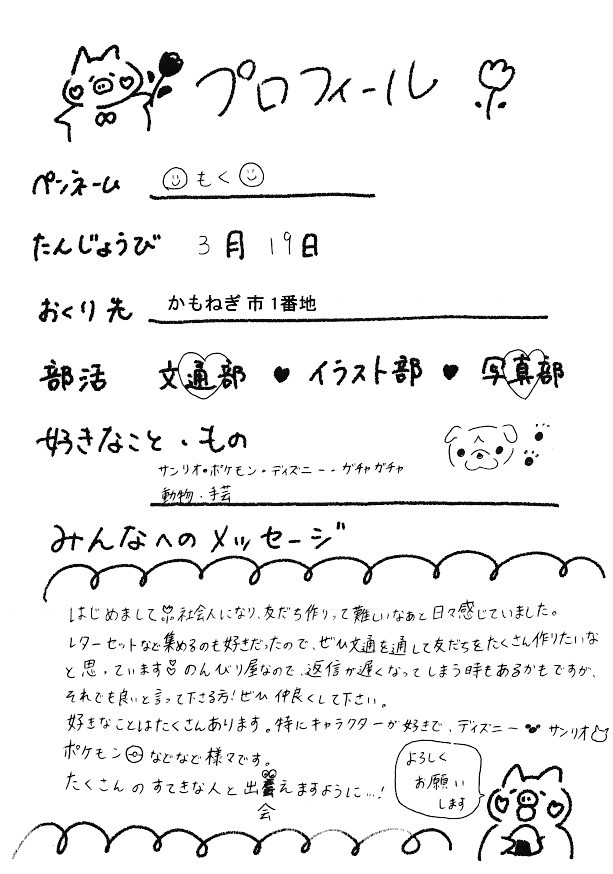 プロフィール
ペンネーム もく
たんじょうび 3月19日
おくり先 かもねぎ市1番地
部活 文通部 ♥ イラスト部 ♥ 写真部
好きなこと・もの
サンリオ・ポケモン・ディズニー・ガチャガチャ
動物・手芸
みんなへのメッセージ
はじめまして 社会人になり、友だち作りって難しいなぁと日々感じていました。
レターセットなど集めるのも好きだったので、ぜひ文通を通して友だちをたくさん作りたいな
と思っています のんびり屋なので、返信が遅くなってしまう時もあるかもですが、
それでも良いと言って下さる方！ぜひ仲良くして下さい。
好きなことはたくさんあります。特にキャラクターが好きで、ディズニー サンリオ
ポケモン などなど様々です。
たくさんのすてきな人と出えますように…！
会
よろしく
お願い
します